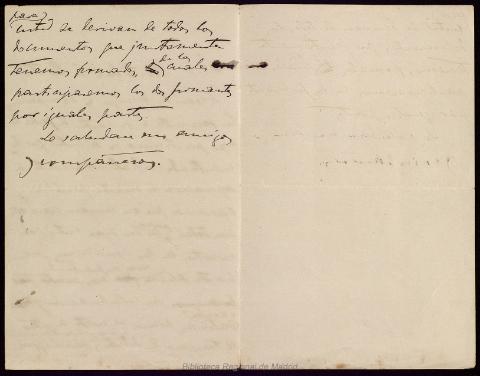 (para)
usted se derivan de todos los
documentos que juntamente
tenemos firmados, de los cuales
participaremos los dos firmantes
por iguales partes.
Le saludan sus amigos
y compañeros.
Biblioteca Regional de Madrid